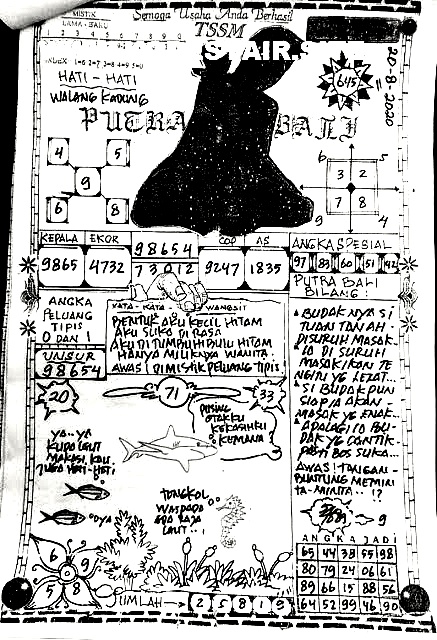 MISTIK
LAMA - BARU
Semoga Usaha Anda Berhasil
TSSM
SYAIR.S
1 2 3 4 5 6 7 8 9 0
INDEX 1=6 2=7 3=8 4=9 5=0
HATI - HATI
WALANG KADUNG
645
20-8-2020
PUTRA BALI
4 5
9
6 8
6 5
3 2
7 8
9 4
KEPALA EKOR
9865 4732
98654
73012
COP AS
9247 1835
ANGKA SPESIAL
97 83 60 51 42
PUTRA BALI
BILANG :
ANGKA
PELUANG
TIPIS
0 DAN 1
UNSUR
98654
KATA - KATA WANGSIT
BENTUK AKU KECIL HITAM
AKU SUKA DI RASA
AKU DI TUMBUHI BULU HITAM
HANYA MILIKNYA WANITA
AWAS DI MISTIK PELUANG TIPIS
BUDAK NYA SI
TUAN TANAH
DISURUH MASAK
IO DI SURUH
MASAK IKAN TE
NGIRI YG LEZAT...
SI BUDAK PUN
SIAPIA AKAN
MASAK YG ENAK..
APALAGI IO BU
DAK YG CANTIK
PASTI BOS SUKA...
AWAS! TANGAN-
BUNTUNG MEMINI
TA-MINTA..!?
20
71
33
PUSING
OTAKKU
KEKASIHKU
KEMANA
YA..YA
KUDA LAUT
HATI-HATI
OYA
TONGKOL
WASPADA
ADA RAJA
LAUT..!
9
6 9
5 8
JUMLAH
2 5 8 1 9
ANGKA JADI
65 44 38 55 98
80 79 24 06 61
89 66 15 88 56
64 52 99 46 90